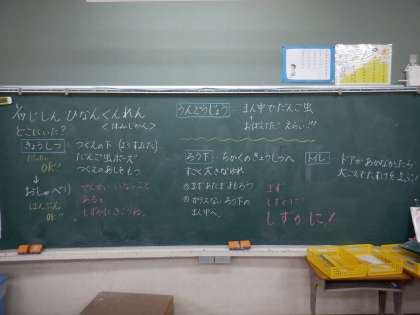 じしん ひなんくんれん
どこにいた?
きょうしつ
つくえの下
だんご虫ポーズ
つくえのあしをもつ
OK!!
↓
おしゃべり
はんぶん
OK!!
せんせい いないこと
あると
しずかにきこうね。
うんどうじょう
まん中でだんご虫
↓
ろう下
ちかくのきょうしつへ
すごく大きなゆれ
①まずあたまをまもろう
ろう下の
まん中へ。
まず
しずかに!
しずかに!
トイレ
ドアがあかなかったら
大ごえでたすけをよぶ!